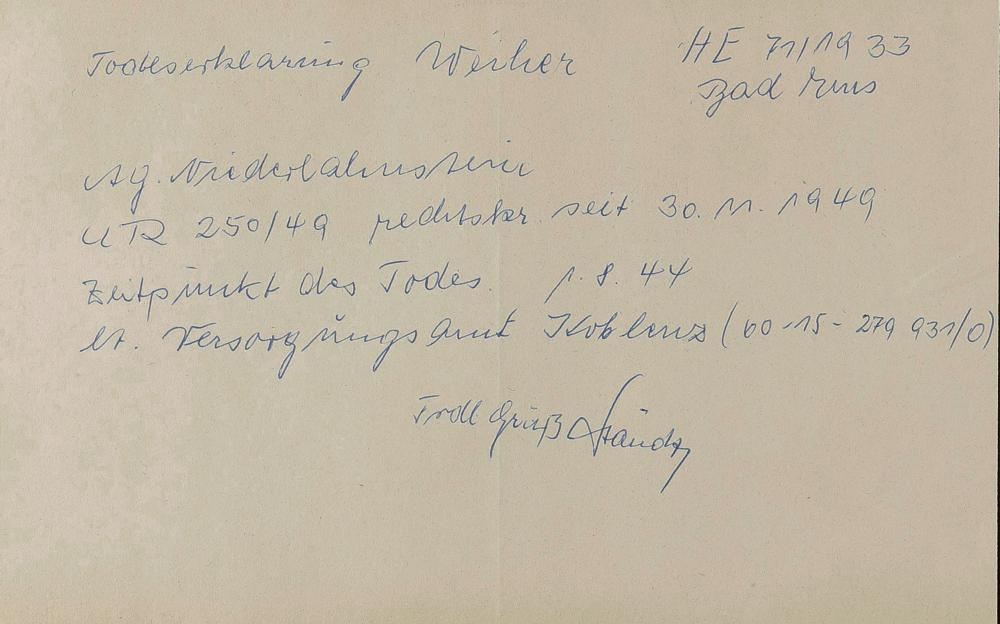 Todeserklärung Weiher HE 71/1933
Bad Ems
Ag. Niederlahnstein
UR 250/49 rechtskr seit 30. 11. 1949
Zeitpunkt des Todes 1. 8. 44
lt. Versorgungsamt Koblenz (60-15-279 931/0)
Frdl Gruß